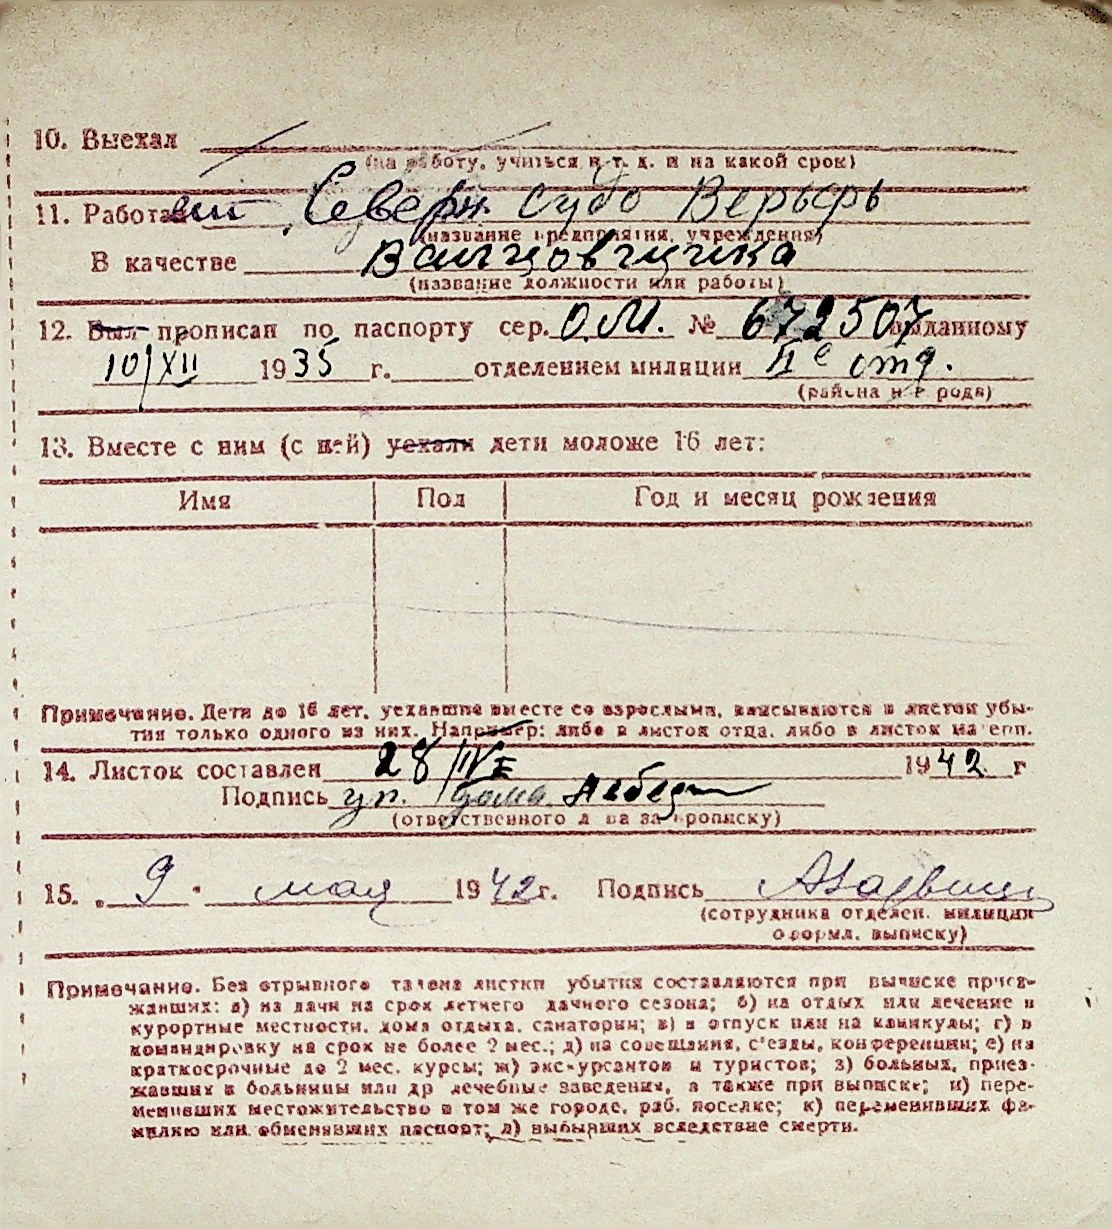 10. Выехал
(на работу, учиться и т. д. и на какой срок)
11. Работает Северн. судо Верьфь
(название предприятия, учреждения)
В качестве Вальцовщика
(название должности или работы)
12. Был прописан по паспорту сер. О.М. № 672507 выданному
10/XII 1935 г. отделением милиции IIе отд.
(района и города)
13. Вместе с ним (с ней) уехали дети моложе 16 лет:
Имя Пол Год и месяц рождения
Примечание. Дети до 16 лет, уехавшие вместе со взрослыми, вписываются в листок убы-
тия только одного из них. Например: либо в листок отца, либо в листок матери.
14. Листок составлен 28/IV 1942 г
Подпись уп. дома
(ответственного л ва за прописку)
15. „9" мая 1942 г. Подпись
(сотрудника отделен. милиции
оформл. выписку)
Примечание. Без отрывного талона листки убытия составляются при выписке приез-
жавших: а) на дачи на срок летнего дачного сезона; б) на отдых или лечение в
курортные местности, дома отдыха, санатории; в) в отпуск или на каникулы; г) в
командировку на срок не более 2 мес.; д) на совещания, с'езды, конференции; е) на
краткосрочные до 2 мес. курсы; ж) экскурсантов и туристов; з) больных, приез-
жавших в больницы или др лечебные заведения, а также при выписке; и) пере-
менивших местожительство в том же городе, раб. поселке; к) переменивших фа-
милию или обменявших паспорт; л) выбывших вследствие смерти.